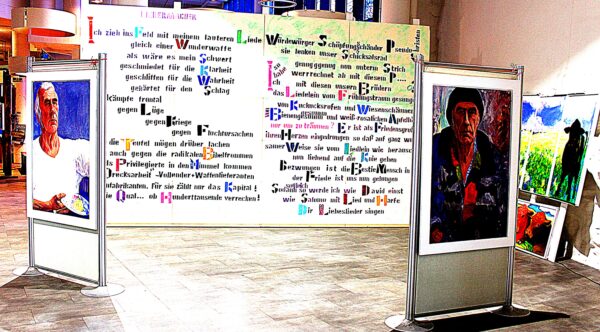 Ich zieh ins Feld mit meinem lauteren Liede
gleich einer Wunderwaffe
als wäre es mein Schwert
geschmiedet für die Klarheit
geschliffen für die Wahrheit
gehärtet für den Schlag
kämpfe frontal
gegen Lüge
gegen Kriege
gegen Fluchtursachen
Teufel mögen drüber lachen
auch gegen die radikalen
Privilegierte in den Himmel kommen
Vollender Waffenlieferanten
fabrikanten, für sie zählt nur das Kapital!
Qual... ob Hunderttausende verrecken!
Würdewürger Schöpfungsschänder
sie lenken unser Schicksalsrad
genug unterm Strich
mit diesen
mit diesen Brüdern
das Liedelein vom Frühlingstraum gesungen
von Kuckucksrufen und Wiesenschaum
Bienengesumm und weiß-rosatlichen
nur um zu träumen? Er ist als Friedensgruß
ihren Herzen eingedrungen so daß auf ganz
Weise sie vom Liedlein wie benommen
nun flehend auf die Knie gehen
Bezwungen ist die Bestie Mensch in
der Friede ist uns nun gelungen
so werde ich wie David einst
wie Salomo mit Lied und Harfe
Dir Liebeslieder singen